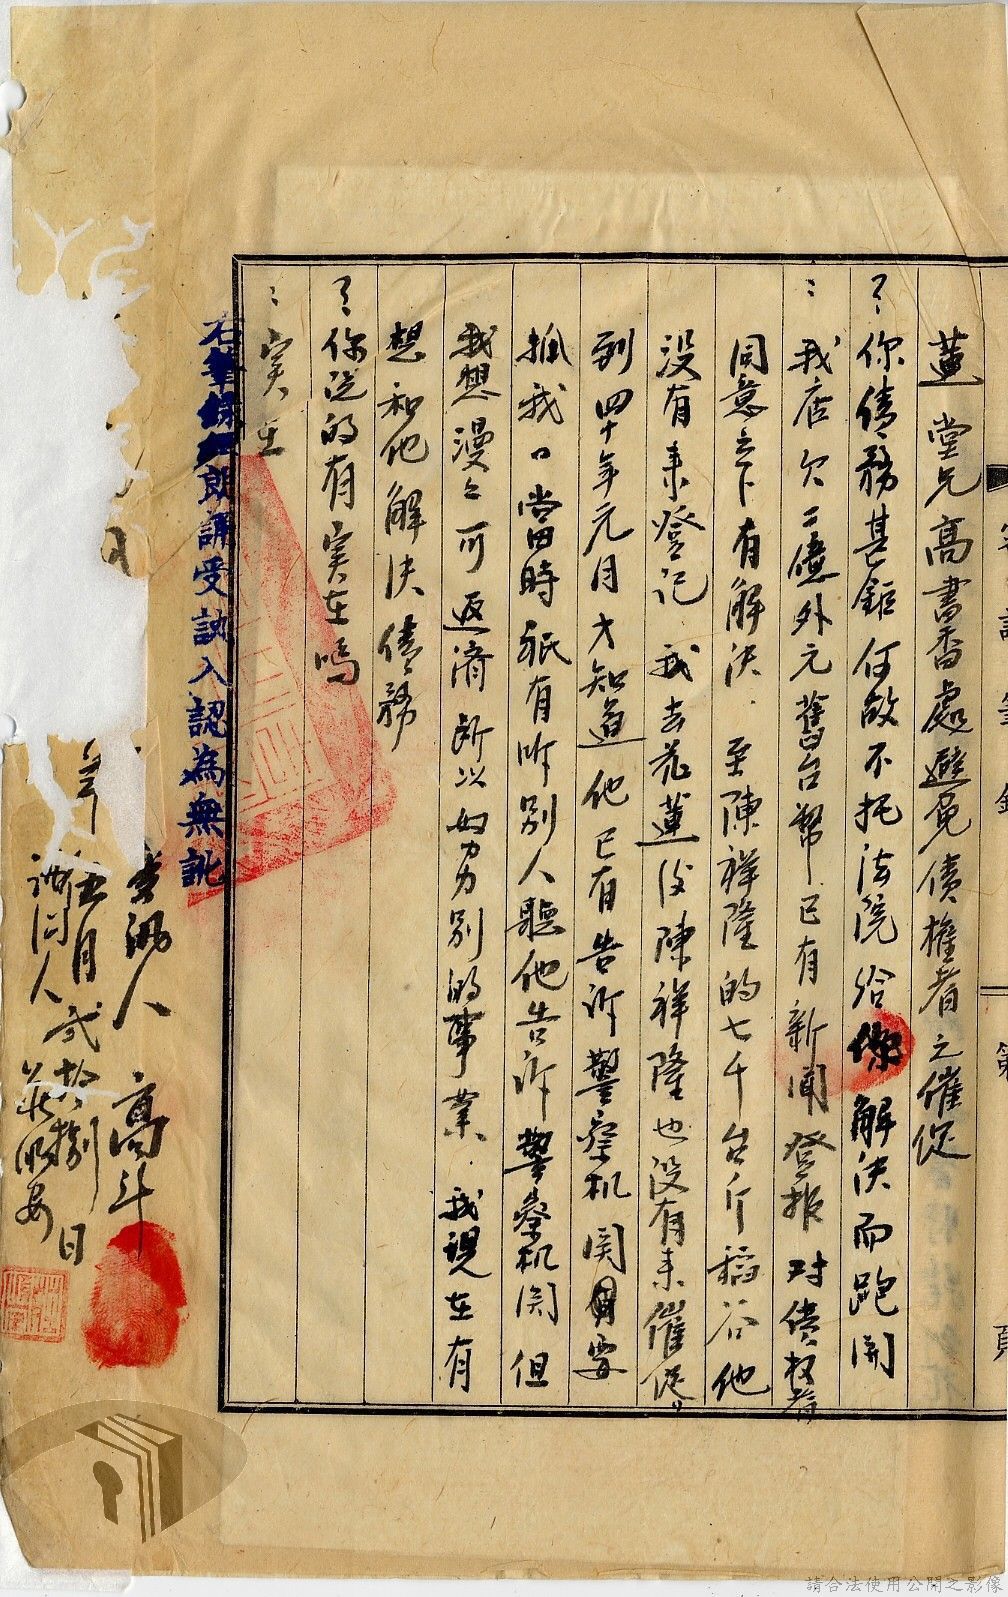 蓮 堂兄高書香處避免債權者之催促
?你債務甚鉅何故不托法院給你解決而跑開
:我店欠二億外元舊台幣已有新聞登报对债权者
同意之下有解決.至陳祥隆的七千台斤稻谷他
没有来登記 我去花蓮後陳祥隆也没有来催促
到四十年元月才知道他已有告訴警察机関要
抓我 當時祇有听別人聽他告訴警察机関 但
我想漫々可返濟所以努力別的事業.我現在有
想和他解決債務
?你说的有实在嗎
:实在
右筆錄經朗誦受訊人認為無訛
受訊人 高斗
年五月弍拾捌日
訊问人
第 頁
請合法使用公開之影像